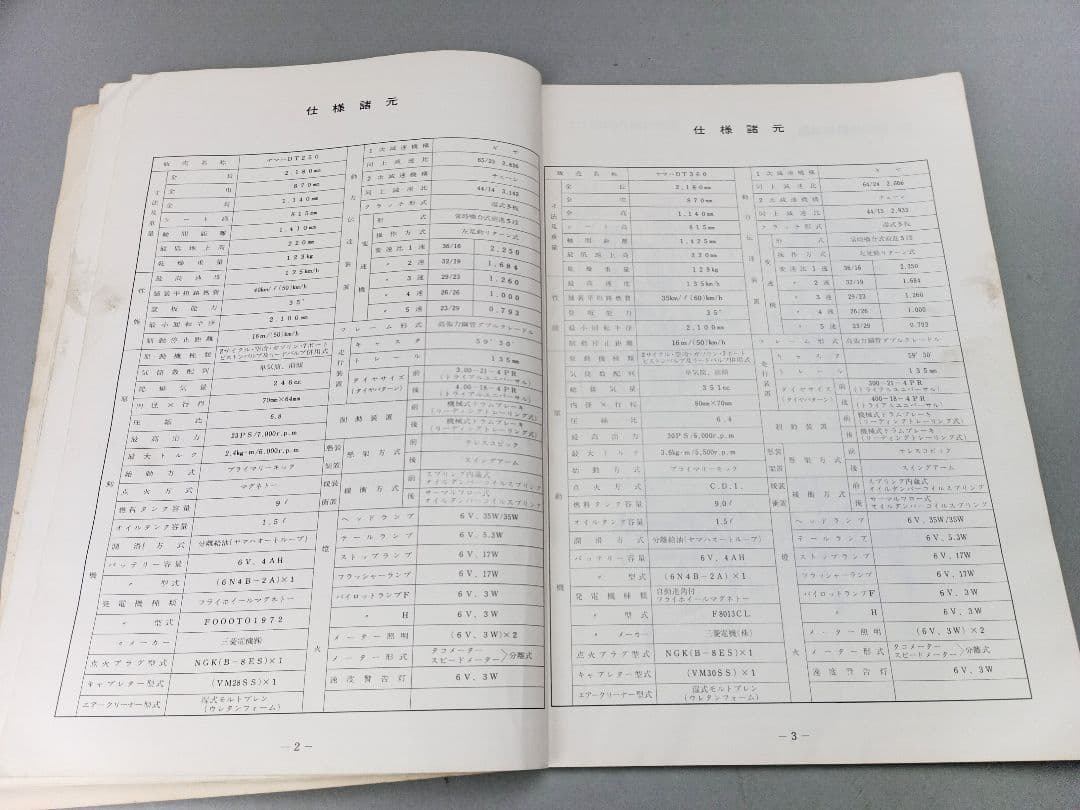 仕様諸元
販売名称 ヤマハDT250 1次減速機構 ギヤ
全長 2,180mm 同上減速比 65/23 2.826
全巾 870mm 2次減速機構 チェーン
全高 1,140mm 同上減速比 44/14 3.143
シート高 815mm クラッチ形式 湿式多板
軸間距離 形式 常時噛合式前進5段
最低地上高 220mm 操作方式 左足動リターン式
乾燥重量 123kg 変速比1速 36/16 2.250
最高速度 125km/h 〃 2速 32/19 1.684
舗装平坦路燃費 40km/ℓ(60)km/h 〃 3速 29/23 1.260
登坂能力 35° 〃 4速 26/26 1.000
最小回転半径 2,100mm 〃 5速 23/29 0.793
制動停止距離 16m/(50)km/h フレーム形式 高張力鋼管ダブルクレードル
原動機種類 2サイクル・空冷・ガソリン・7ポート ピストンバルブ及リードバルブ併用式 キャスタ 59°30′
気筒数配列 単気筒、前傾 トレール 135mm
総排気量 246cc タイヤサイズ (タイヤパターン) 前 3.00-21-4PR (トライアルユニバーサル)
内径×行程 70mm×64mm 後 4.00-18-4PR (トライアルユニバーサル)
圧縮比 6.8 制動装置 前 機械式ドラムブレーキ (リーディングトレーリング式)
最高出力 23PS/7,000r.p.m 後 機械式ドラムブレーキ (リーディングトレーリング式)
最大トルク 2.4kg-m/6,000r.p.m 懸架方式 前 テレスコピック
始動方式 プライマリーキック 後 スイングアーム
点火方式 マグネトー 緩衝方式 前 スプリング内蔵式 オイルダンパーコイルスプリング
燃料タンク容量 9ℓ 後 サーマルフロー式 オイルダンパーコイルスプリング
オイルタンク容量 1.5ℓ ヘッドランプ 6V、35W/35W
潤滑方式 分離給油(ヤマハオートルーブ) テールランプ 6V、5.3W
バッテリー容量 6V、4AH ストップランプ 6V、17W
〃 型式 (6N4B-2A)×1 フラッシャーランプ 6V、17W
発電機種類 フライホイールマグネトー パイロットランプF 6V、3W
〃 型式 F000T01972 〃 H 6V、3W
〃メーカー 三菱電機㈱ メーター照明 (6V、3W)×2
点火プラグ型式 NGK(B-8ES)×1 メーター形式 タコメーター スピードメーター 〉分離式
キャブレター型式 (VM28SS)×1 速度警告灯 6V、3W
エアークリーナー型式 湿式モルトプレン (ウレタンフォーム)
-2-
仕様諸元
販売名称 ヤマハDT360 1次減速機構 ギヤ
全長 2,180mm 同上減速比
全巾 870mm 2次減速機構 チェーン
全高 1,140mm 同上減速比 44/15 2.933
シート高 815mm クラッチ形式 湿式多板
軸間距離 1,425mm 形式 常時噛合式前進5段
最低地上高 220mm 操作方式 左足動リターン式
乾燥重量 128kg 変速比1速 36/16 2.250
最高速度 135km/h 〃 2速 32/19 1.684
舗装平坦路燃費 35km/ℓ(60)km/h 〃 3速 29/23 1.260
登坂能力 35° 〃 4速 26/26 1.000
最小回転半径 2,100mm 〃 5速 23/29 0.793
制動停止距離 16m/(50)km/h フレーム形式 高張力鋼管ダブルクレードル
原動機種類 2サイクル・空冷・ガソリン・7ポート ピストンバルブ及リードバルブ併用式 キャスタ 59°30′
気筒数配列 単気筒、前傾 トレール 135mm
総排気量 351cc タイヤサイズ (タイヤパターン) 前 300-21-4PR (トライアルユニバーサル)
内径×行程 80mm×70mm 後 400-18-4PR (トライアルユニバーサル)
圧縮比 6.4 制動装置 前 機械式ドラムブレーキ (リーディングトレーリング式)
最高出力 30PS/6,000r.p.m 後 機械式ドラムブレーキ (リーディングトレーリング式)
最大トルク 3.6kg-m/5,500r.p.m 懸架方式 前 テレスコピック
始動方式 プライマリーキック 後 スイングアーム
点火方式 C.D.I. 緩衝方式 前 スプリング内蔵式 オイルダンパーコイルスプリング
燃料タンク容量 9.0ℓ 後 サーマルフロー式 オイルダンパーコイルスプリング
オイルタンク容量 1.5ℓ ヘッドランプ 6V、35W/35W
潤滑方式 分離給油(ヤマハオートルーブ) テールランプ 6V、5.3W
バッテリー容量 6V、4AH ストップランプ 6V、17W
〃 型式 (6N4B-2A)×1 フラッシャーランプ 6V、17W
発電機種類 自動進角付 フライホイールマグネトー パイロットランプF 6V、3W
〃 型式 F8013CL 〃 H 6V、3W
〃 メーカー 三菱電機(株) メーター照明 (6V、3W)×2
点火プラグ型式 NGK(B-8ES)×1 メーター形式 タコメーター スピードメーター 〉分離式
キャブレター型式 (VM30SS)×1 速度警告灯 6V、3W
エアークリーナー型式 湿式モルトプレン (ウレタンフォーム)
-3-